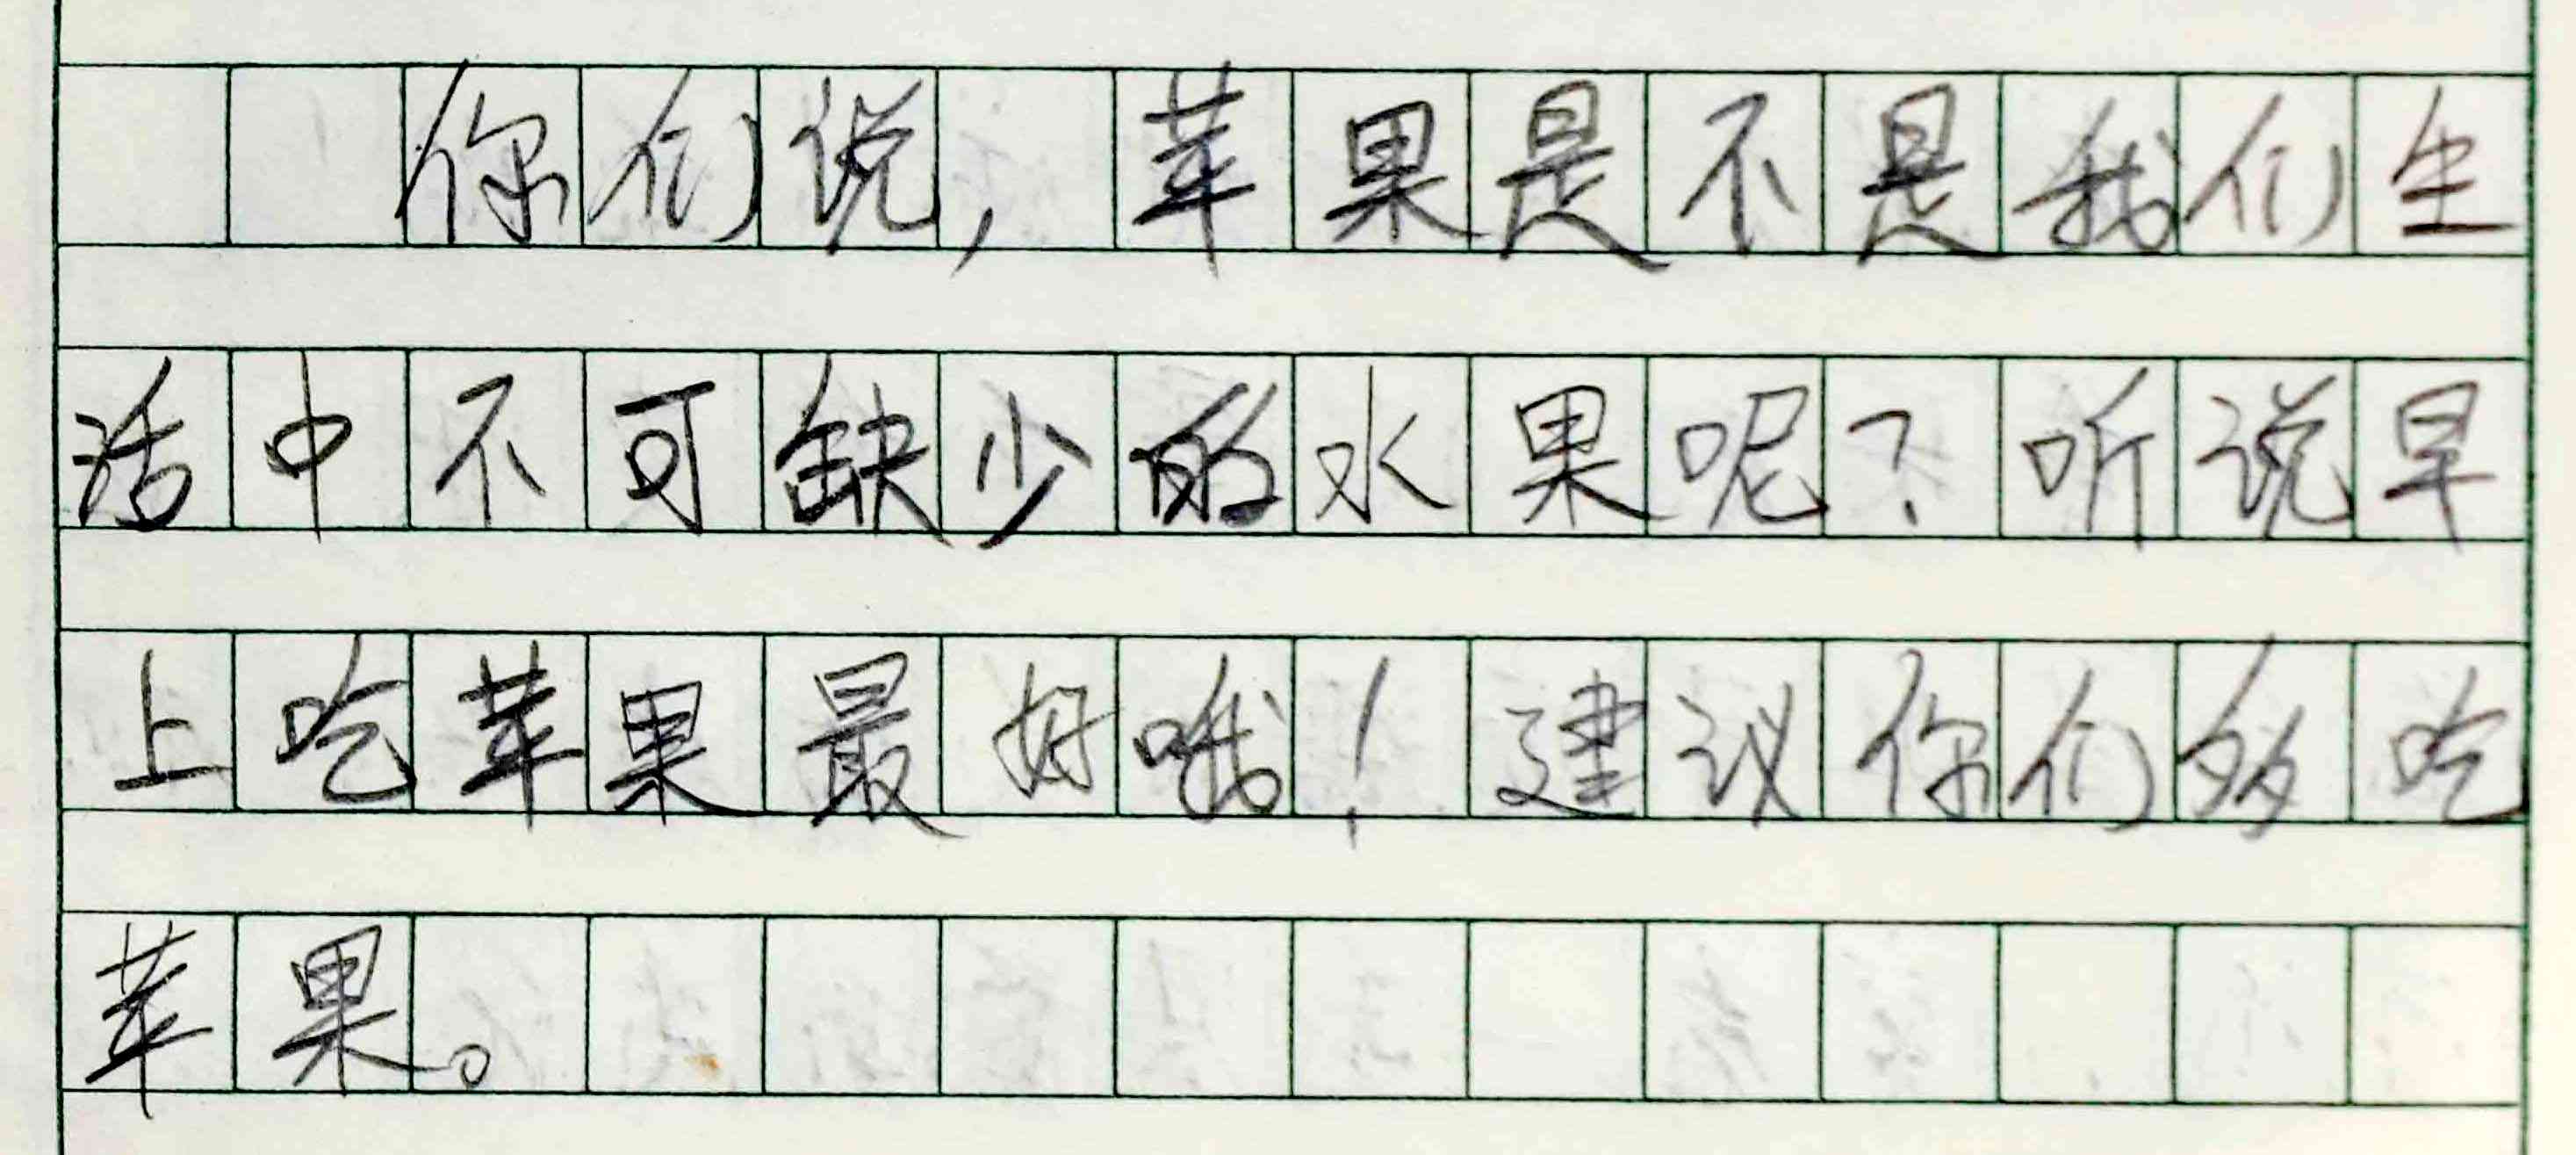 你们说，苹果是不是我们生
活中不可缺少的水果呢？听说早
上吃苹果最好哦！建议你们多吃
苹果。